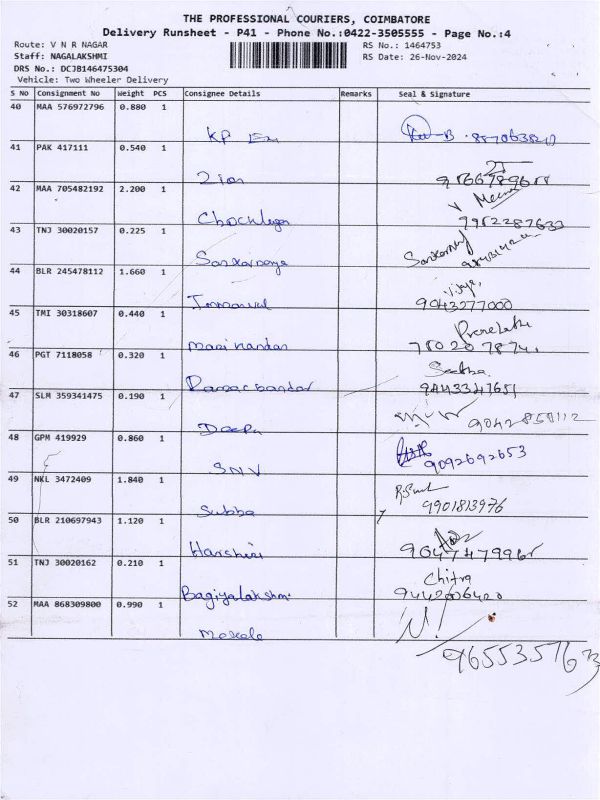 THE PROFESSIONAL COURIERS, COIMBATORE
Delivery Runsheet - P41 - Phone No.:0422-3505555 - Page No.:4
Route: V N R NAGAR RS No.: 1464753
Staff: NAGALAKSHMI RS Date: 26-Nov-2024
DRS No.: DCJB146475304
Vehicle: Two Wheeler Delivery
S No Consignment No Weight PCS Consignee Details Remarks Seal & Signature
40 MAA 576972796 0.880 1
KP
41 PAK 417111 0.540 1
Zion
42 MAA 705482192 2.200 1
V Meena
9952287633
43 TNJ 30020157 0.225 1
44 BLR 245478112 1.660 1
Immanuel 9043277000
45 TMI 30318607 0.440 1
Mari nandan
46 PGT 7118058 0.320 1
Seetha
Ramachandar 9443347651
47 SLM 359341475 0.190 1
Deepa 9042858112
48 GPM 419929 0.860 1
SNV 9092692653
49 NKL 3472409 1.840 1
Subba 9901813976
50 BLR 210697943 1.120 1
Harshini
51 TNJ 30020162 0.210 1
Chitra
Bagiyalakshmi 9442006420
52 MAA 868309800 0.990 1